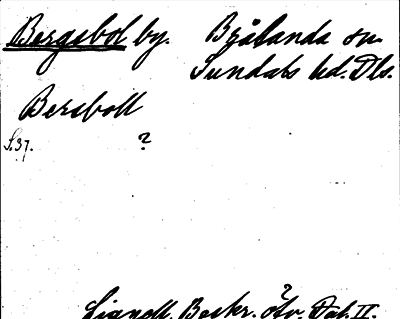 Bergsbol by. Brålanda sn
Sundals hd. Dls.
Bersboll
S. 37. ?
Lignell, Beskr. öfv. Dal. II.